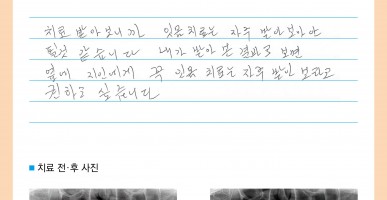 치료 받아보니까 잇몸치료는 자주 받아보아야
될것 같습니다 내가 받아 본 결과로 보면
옆에 지인에게 꼭 잇몸 치료는 자주 받아 보라고
권하고 싶습니다
■ 치료 전·후 사진